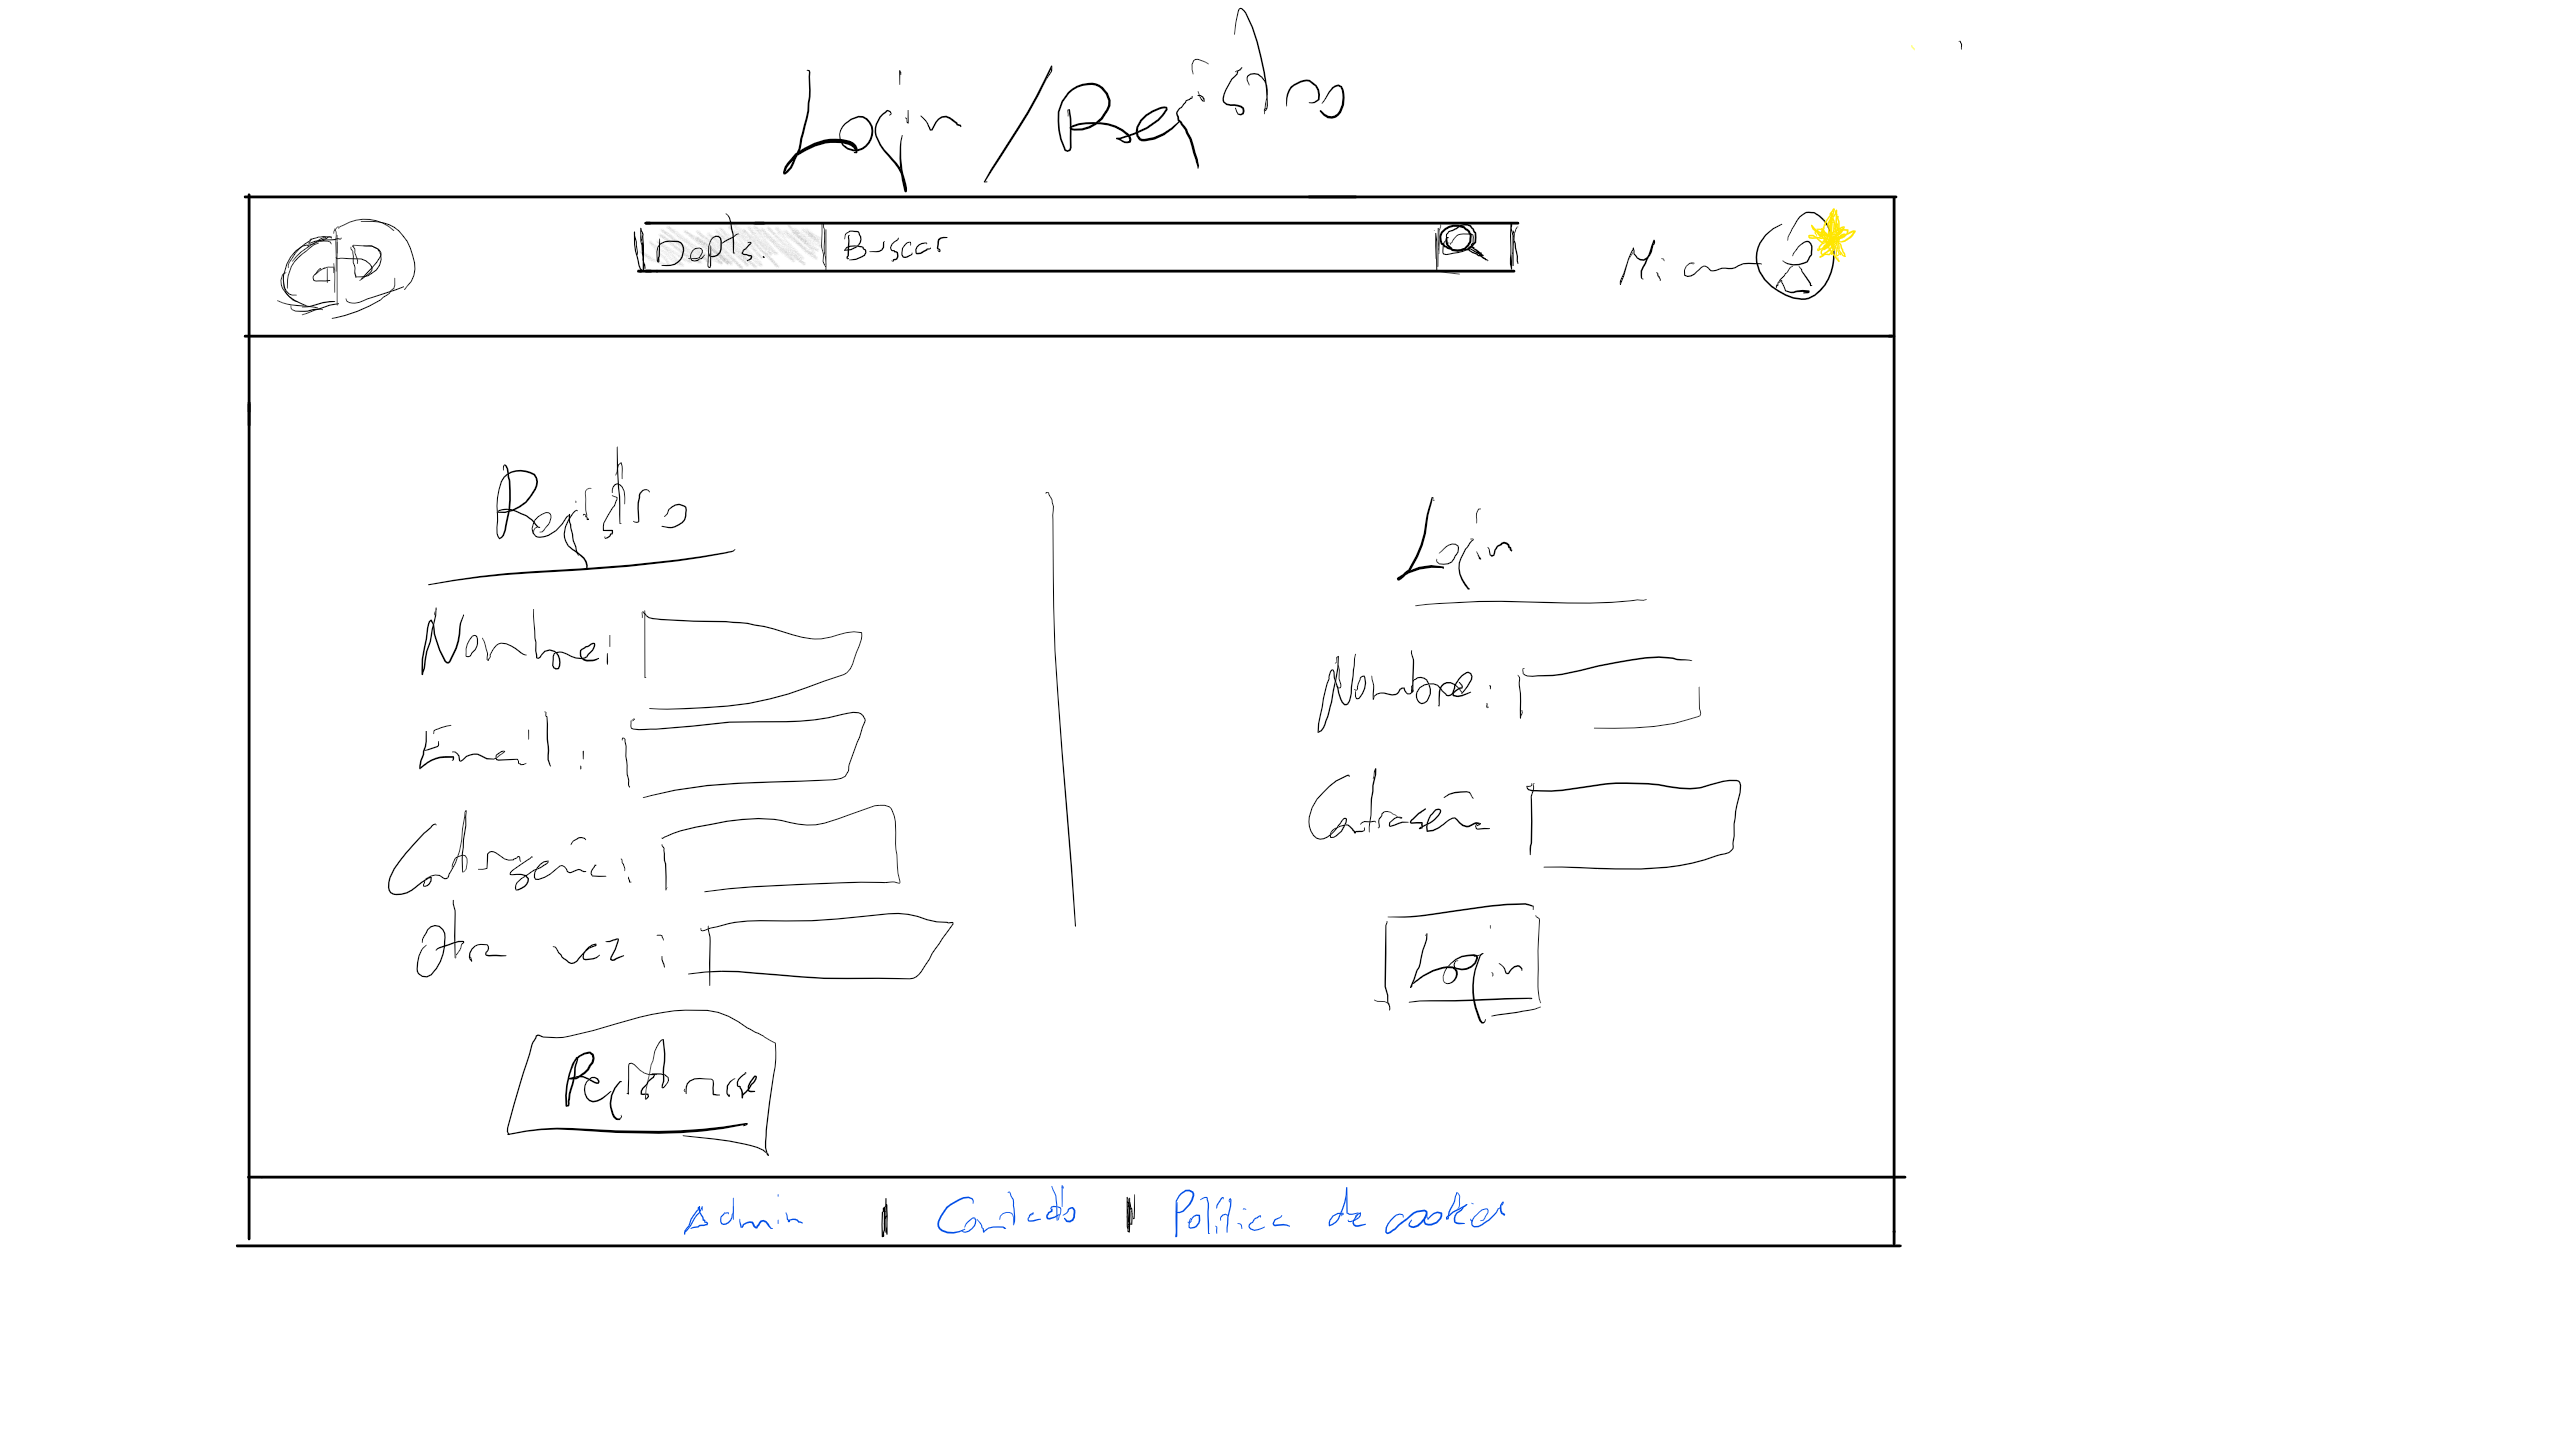 Login / Registro
Depts. Buscar
Mi
Registro
Nombre:
Email:
Contraseña:
Otra vez:
Registrarse
Login
Nombre:
Contraseña
Login
Admin | Contacto | Política de cookies